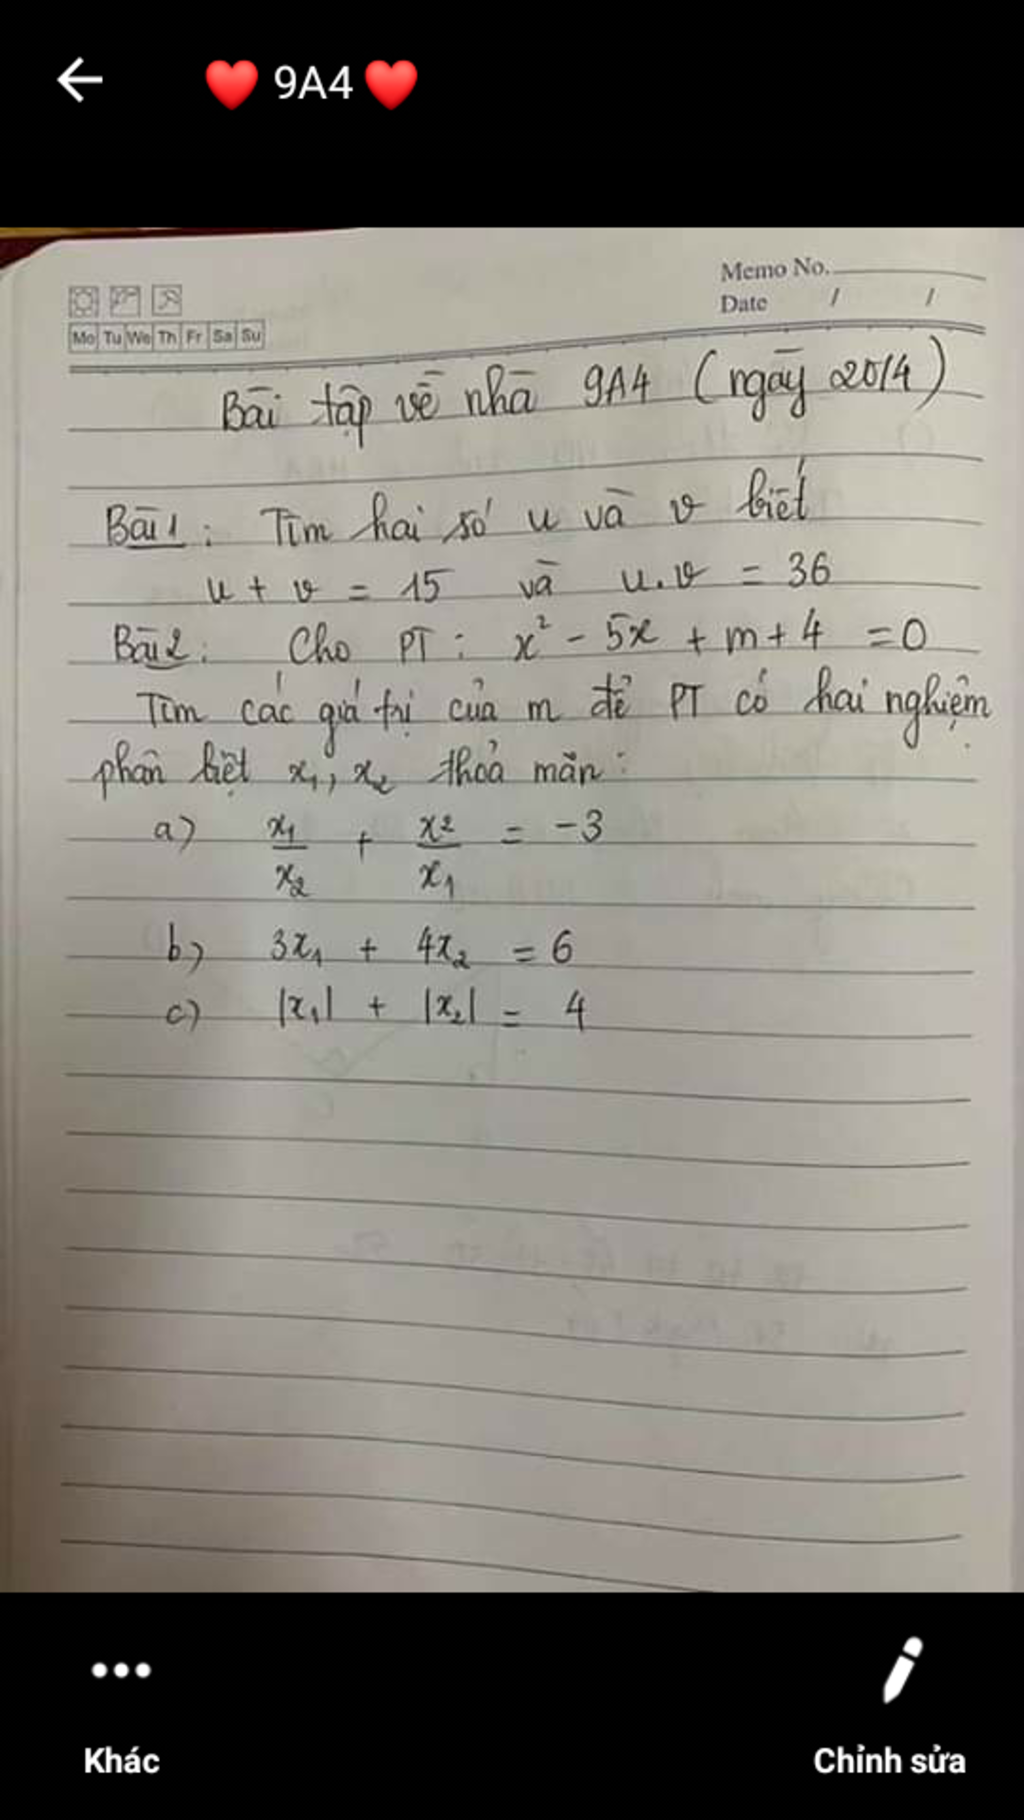 ❤️ 9A4 ❤️
Memo No.
Date / /
Mo Tu We Th Fr Sa Su
Bài tập về nhà 9A4 (ngày 20/4)
Bài 1: Tìm hai số u và v biết
u + v = 15 và u.v = 36
Bài 2: Cho PT: x² - 5x + m + 4 = 0
Tìm các giá trị của m để PT có hai nghiệm
phân biệt x₁, x₂ thoả mãn:
a) x₁/x₂ + x₂/x₁ = -3
b) 3x₁ + 4x₂ = 6
c) |x₁| + |x₂| = 4
Khác
Chỉnh sửa